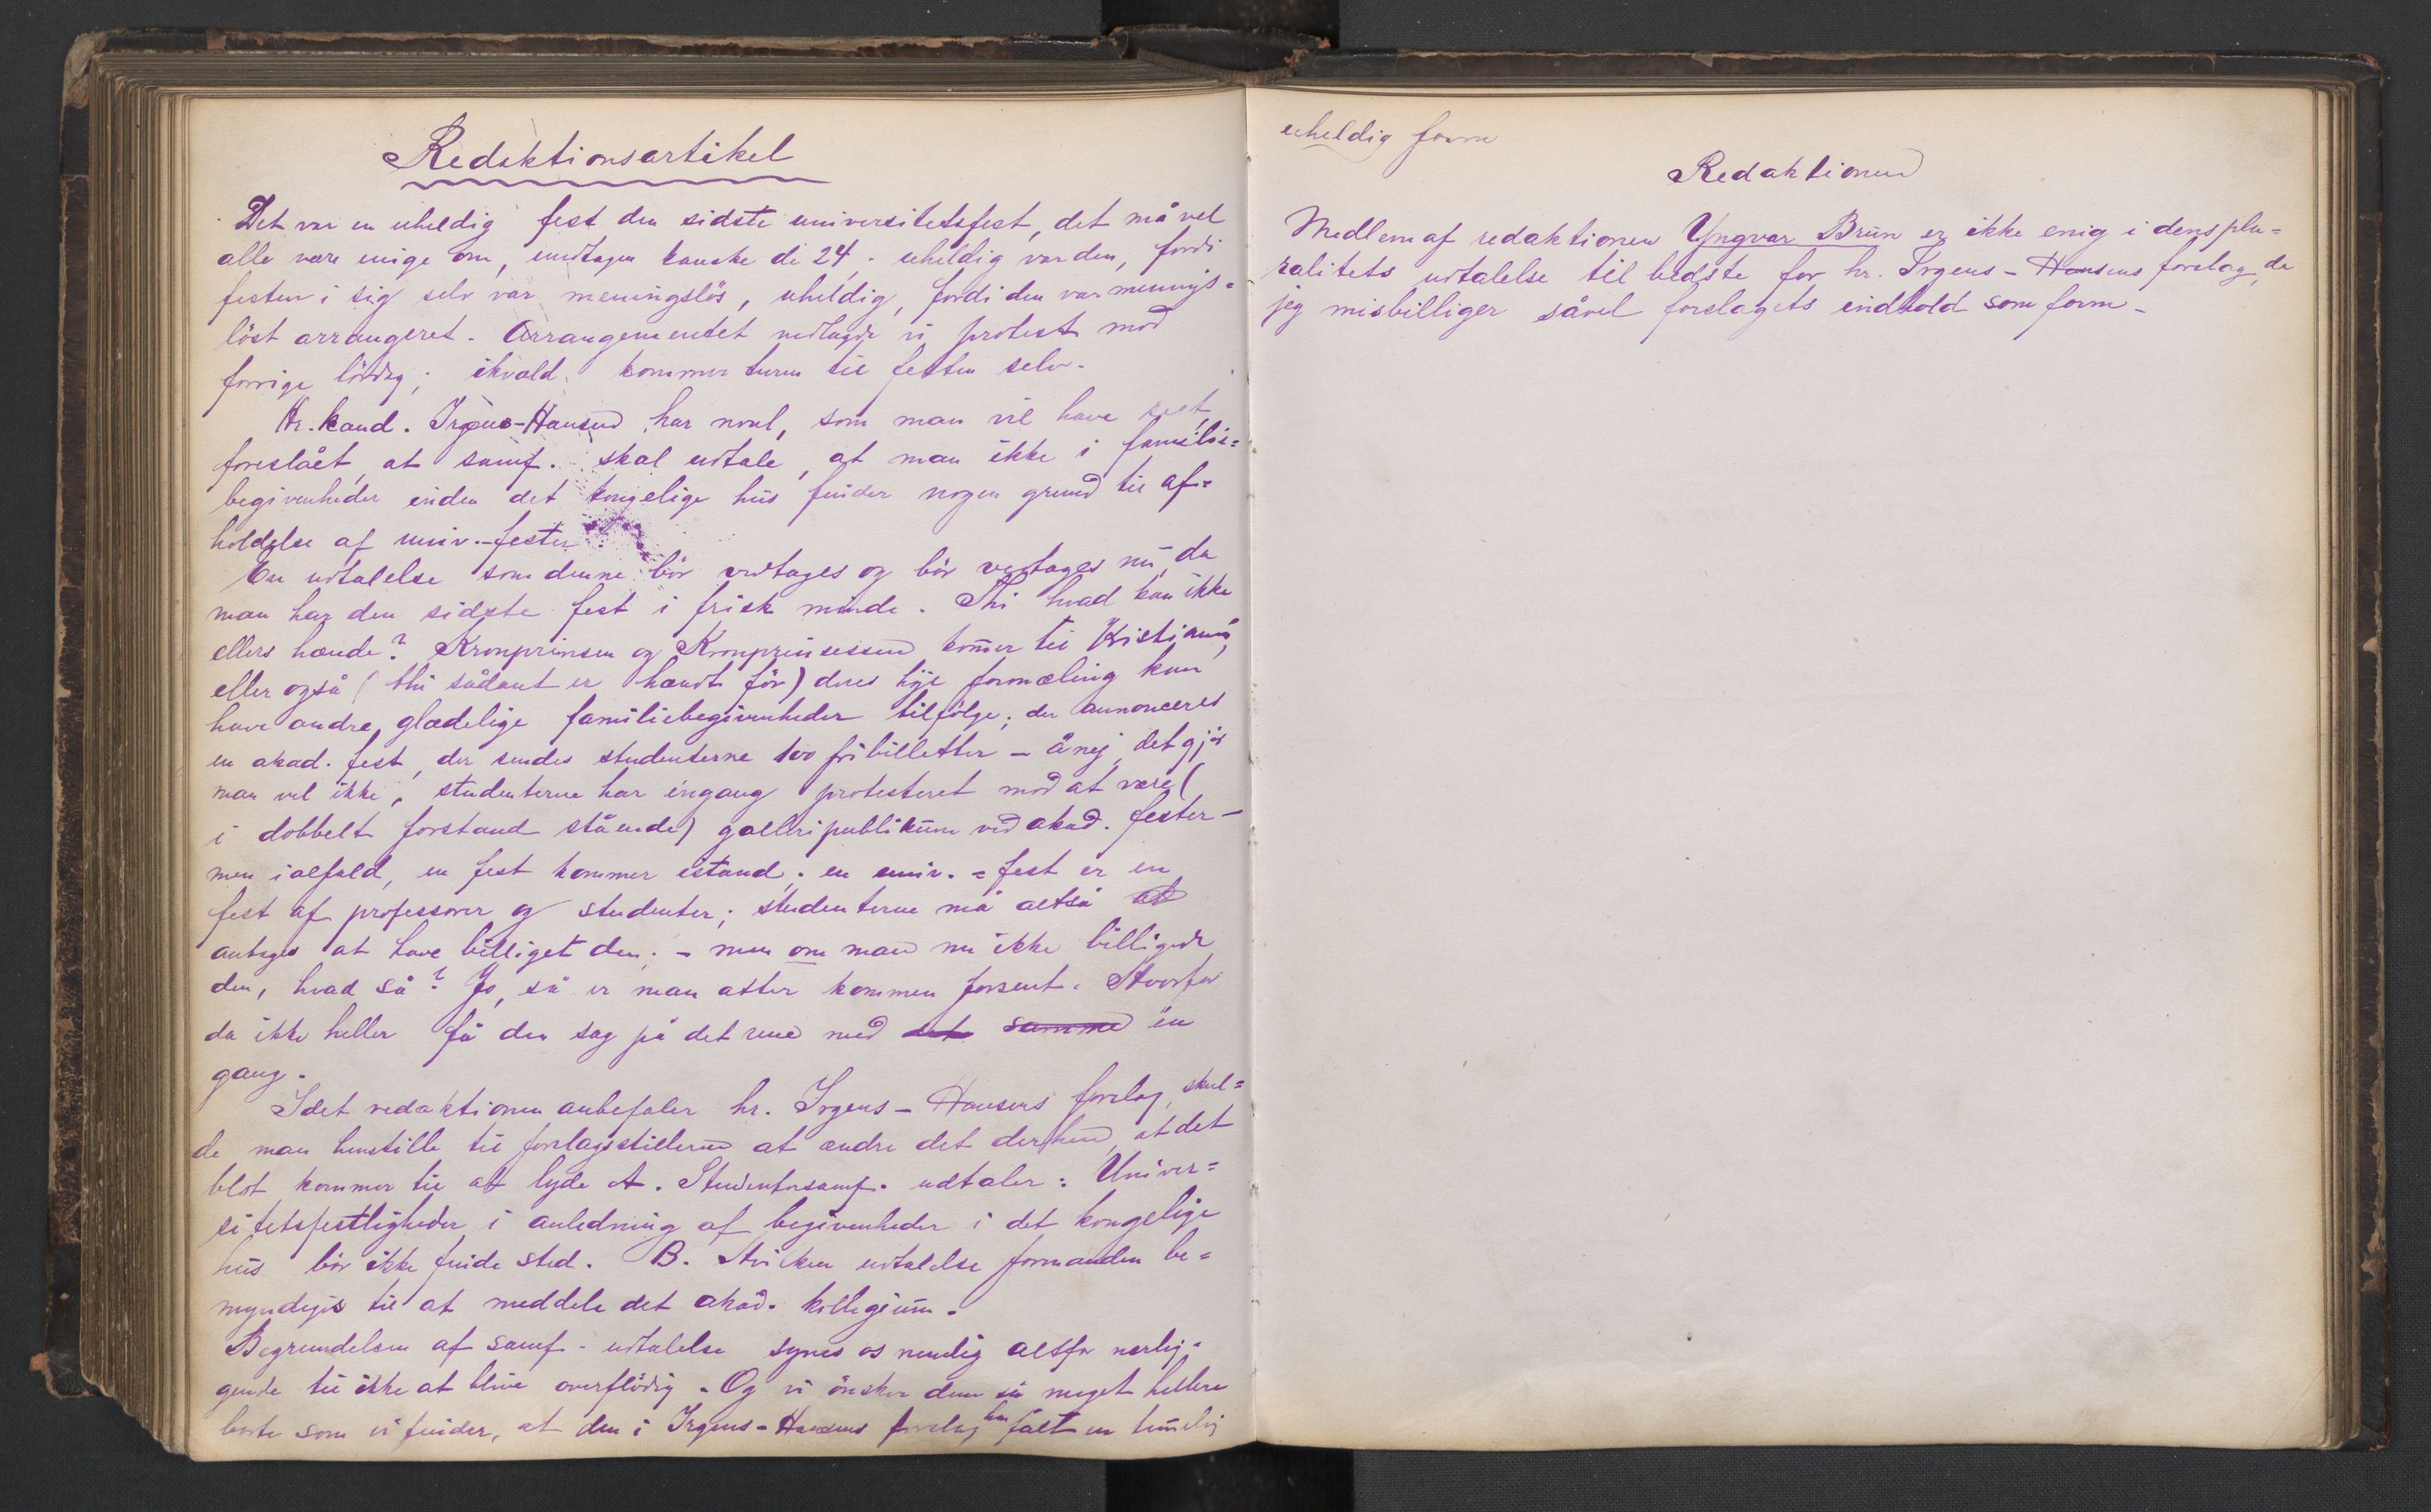 Redaktionsartikel
Det var en uheldig fest den sidste universitetsfest, det må vel
alle være enige om, undtagen kanske de 24. uheldig var den, fordi
festen i sig selv var meningsløs, uheldig, fordi den var menings=
løst arrangeret. Arrangementet vedtagde vi protest mod
forrige lördag; ikvæld kommer turen til festen selv.
Hr. kand. Irgens-Hansen har nemlig, som man vil have set,
foreslået, at samf. skal udtale, at man ikke i familie=
begivenheder inden det kongelige hus finder nogen grund til af=
holdelse af univ.-fester.
En udtalelse som denne bör vedtages og bör vedtages nu, da
man har den sidste fest i frisk minde. Thi hvad kan ikke
ellers hænde? Kronprinsen og Kronprinsessen kom̄er til Kristiania,
eller også (thi sådant er hændt för) deres höje formæling kan
have andre glædelige familiebegivenheder tilfölge; der annonceres
en akad. fest, der sendes studenterne 100 fribilletter – å nej, det gjör
man vel ikke, studenterne har engang protesteret mod at være (
i dobbelt forstand stående) galleripublikum ved akad. fester –
men ialfald, en fest kommer istand; en univ.=fest er en
fest af professorer og studenter; studenterne må altså at
antages at have billiget den; – men om man nu ikke billigede
den, hvad så? Jo, så er man atter kommen forsent. Hvorfor
da ikke heller få den sag på det rene med det samme én
gang.
Idet redaktionen anbefaler hr. Irgens-Hansens forslag, skul=
de man henstille til forslagsstilleren at ændre det derhen, at det
blot kommer til at lyde A. Studentersamf. udtaler: Univer=
sitetsfestligheder i anledning af begivenheder i det kongelige
hus bör ikke finde sted. B. Hvilken udtalelse formanden be=
myndiges til at meddele det akad. kollegium.
Begrundelsen af samf.- udtalelse synes os nemlig altfor nærlig=
gende til ikke at blive overflödig. Og vi önsker den så meget hellere
borte som vi finder, at den i Irgens-Hansens forslag har fået en temelig
uheldig form
Redaktionen
Medlem af redaktionen Yngvar Brun er ikke enig i dens plu=
ralitets udtalelse til bedste for hr. Irgens-Hansens forslag, da
jeg misbilliger såvel forslagets indhold som form –